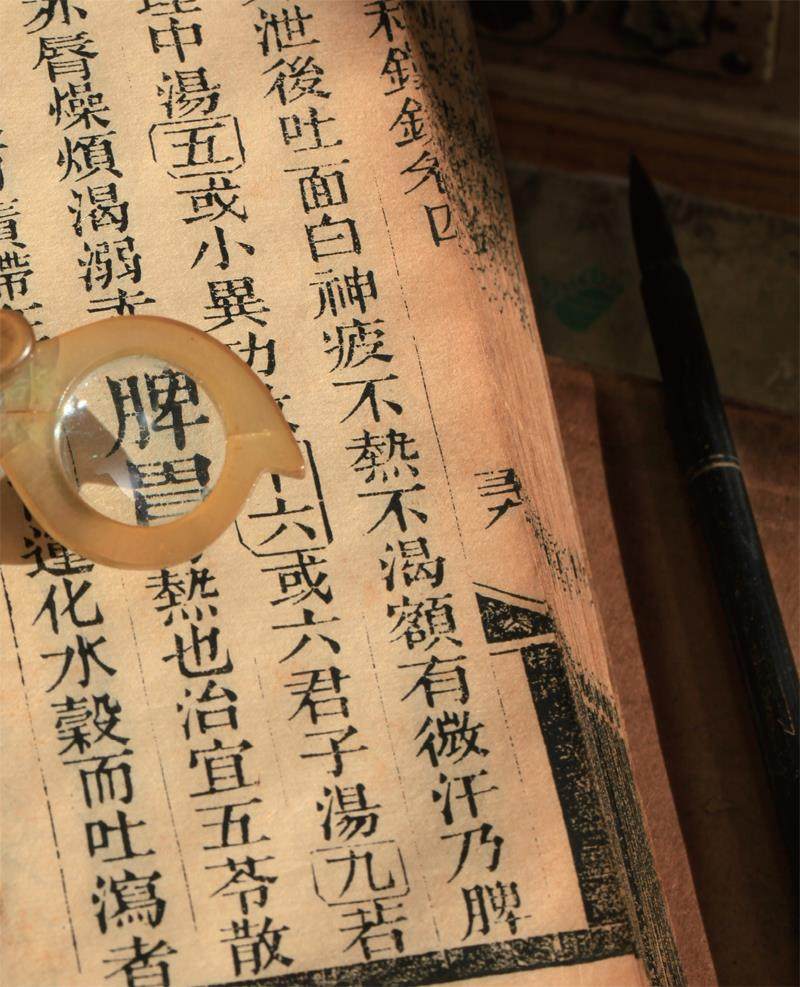 泄後吐面白神疲不熱不渴額有微汗乃脾
理中湯五或小異功六或六君子湯九若
亦唇燥煩渴溺赤脾胃熱也治宜五苓散
滯運化水穀而吐瀉者